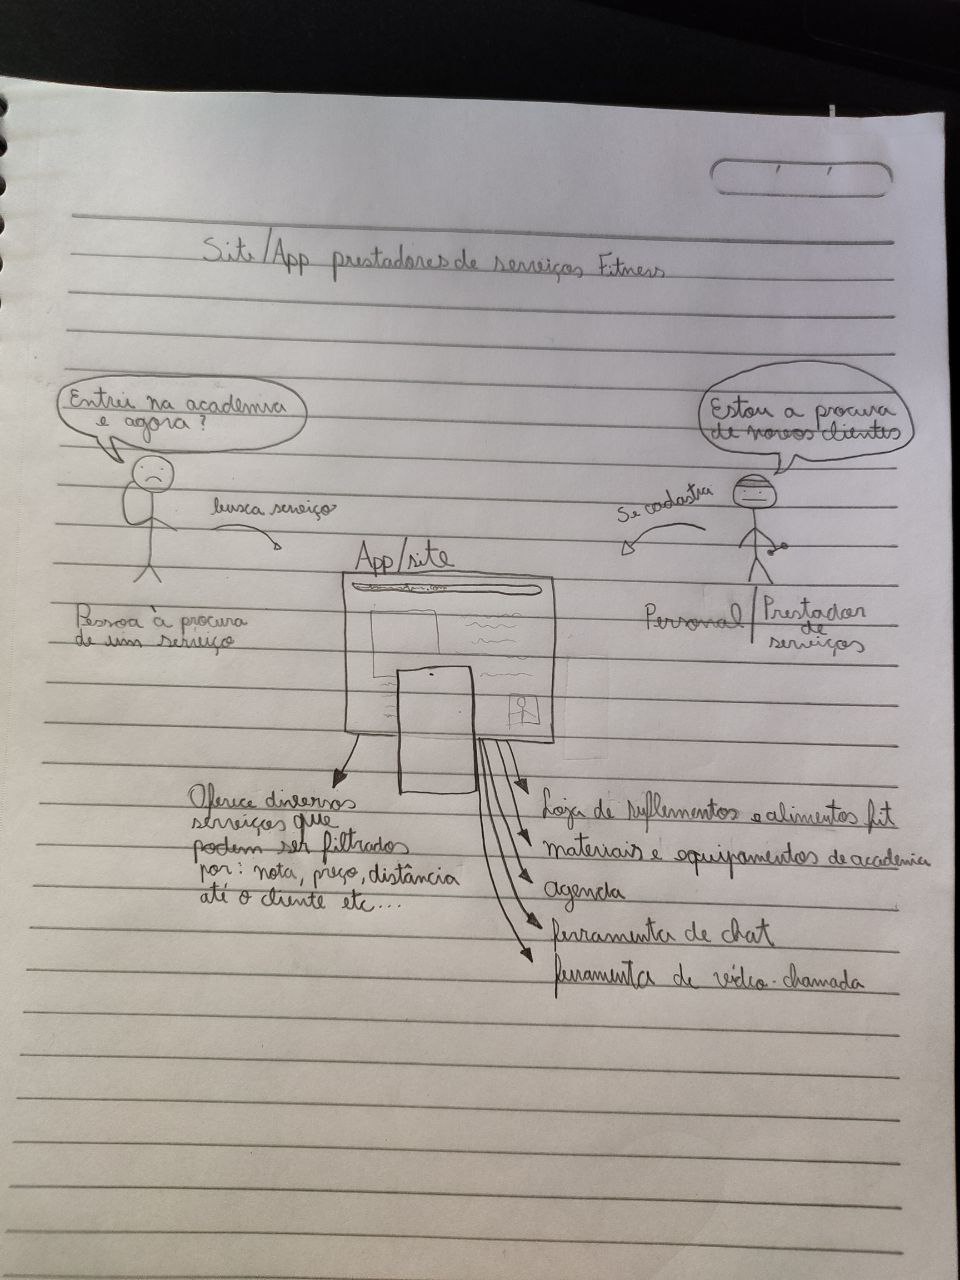 Site/App prestadores de serviços Fitness
Entrei na academia
e agora?
Estou a procura
de novos clientes
busca serviço
Se cadastra
App/site
Pessoa à procura
de um serviço
Personal/Prestador
de
serviços
Oferece diversos
serviços que
podem ser filtrados
por: nota, preço, distância
até o cliente etc...
Loja de suflementos e alimentos fit
materiais e equipamentos de academia
agenda
ferramenta de chat
ferramenta de vídeo-chamada